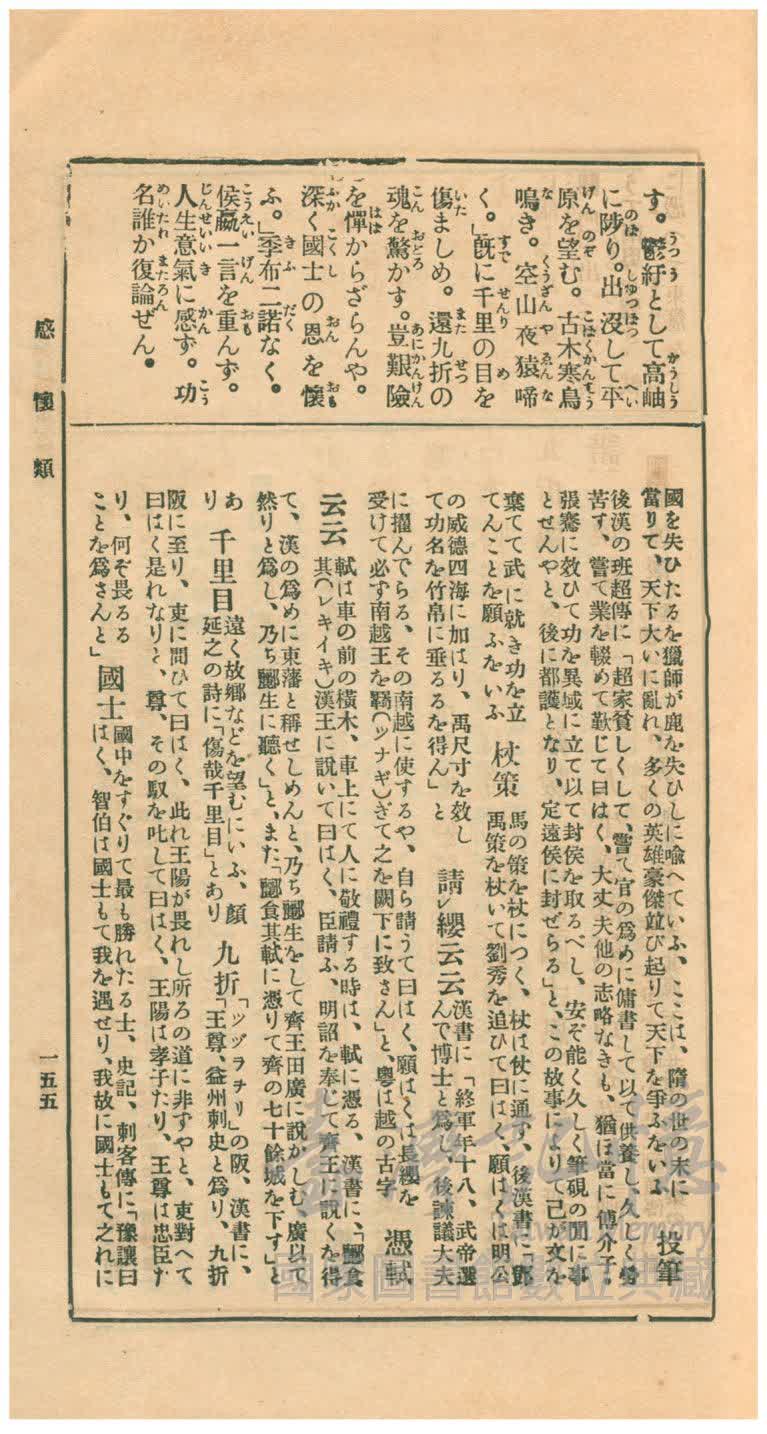 す。鬱紆として高岫
に陟り。出沒して平
原を望む。古木寒鳥
鳴き。空山夜猿啼
く。」旣に千里の目を
傷ましめ。還九折の
魂を驚かす。豈艱險
を憚からざらんや。
深く國士の恩を懷
ふ。」季布二諾なく。
侯嬴一言を重んず。
人生意氣に感ず。功
名誰か復論ぜん。
國を失ひたるを獵師が鹿を失ひしに喩へていふ、ここは、隋の世の末に
當りて、天下大いに亂れ、多くの英雄豪傑竝び起りて天下を爭ふをいふ
投筆
後漢の班超傳に「超家貧しくして、嘗て官の爲めに傭書して以て供養し、久しく勞
苦す、嘗て業を輟めて歎じて曰はく、大丈夫他の志略なきも、猶ほ當に傅介子、
張騫に效ひて功を異域に立て以て封侯を取るべし、安ぞ能く久しく筆硯の間に事
とせんやと、後に都護となり、定遠侯に封ぜらる」と、この故事によりて己が文を
棄てて武に就き功を立
てんことを願ふをいふ
杖策
馬の策を杖につく、杖は仗に通ず、後漢書に「鄧
禹策を杖いて劉秀を追ひて曰はく、願はくは明公
の威德四海に加はり、禹尺寸を效し
て功名を竹帛に垂るるを得ん」と
請レ纓云云
漢書に「終軍年十八、武帝選
んで博士と爲し、後諫議大夫
に擢んでらる、その南越に使するや、自ら請うて曰はく、願はくは長纓を
受けて必ず南越王を羈(ツナギ)ぎて之を闕下に致さん」と、粵は越の古字
憑軾
云云
軾は車の前の橫木、車上にて人に敬禮する時は、軾に憑る、漢書に、「酈食
其(レキイキ)漢王に說いて曰はく、臣請ふ、明詔を奉じて齊王に說くを得
て、漢の爲めに東藩と稱せしめんと、乃ち酈生をして齊王田廣に說かしむ、廣以て
然りと爲し、乃ち酈生に聽く」と、また「酈食其軾に憑りて齊の七十餘城を下す」と
あ
り
千里目
遠く故鄉などを望むにいふ、顏
延之の詩に「傷哉千里目」とあり
九折
「ツヅラヲリ」の阪、漢書に、
「王尊、益州刺史と爲り、九折
阪に至り、吏に問ひて曰はく、此れ王陽が畏れし所ろの道に非ずやと、吏對へて
曰はく是れなりと、尊、その馭を叱して曰はく、王陽は孝子たり、王尊は忠臣た
り、何ぞ畏るる
ことを爲さんと」
國士
國中をすぐりて最も勝れたる士、史記、刺客傳に「豫讓曰
はく、智伯は國士もて我を遇せり、我故に國士もて之れに
感懷類
一五五
國家圖書館數位典藏